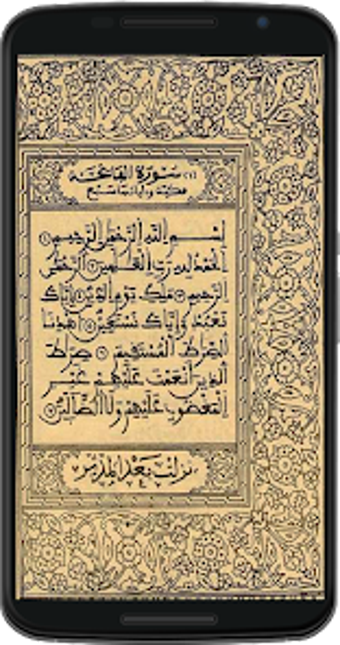 (١) سورة الفاتحة
مكية وآياتها سبع
بسم الله الرحمن الرحيم ١
الحمد لله رب العلمين ٢ الرحمن
الرحيم ٣ ملك يوم الدين ٤ إياك
نعبد وإياك نستعين ٥ اهدنا
الصراط المستقيم ٦ صراط
الذين أنعمت عليهم غير
المغضوب عليهم ولا الضالين ٧
نزلت بعد المدثر